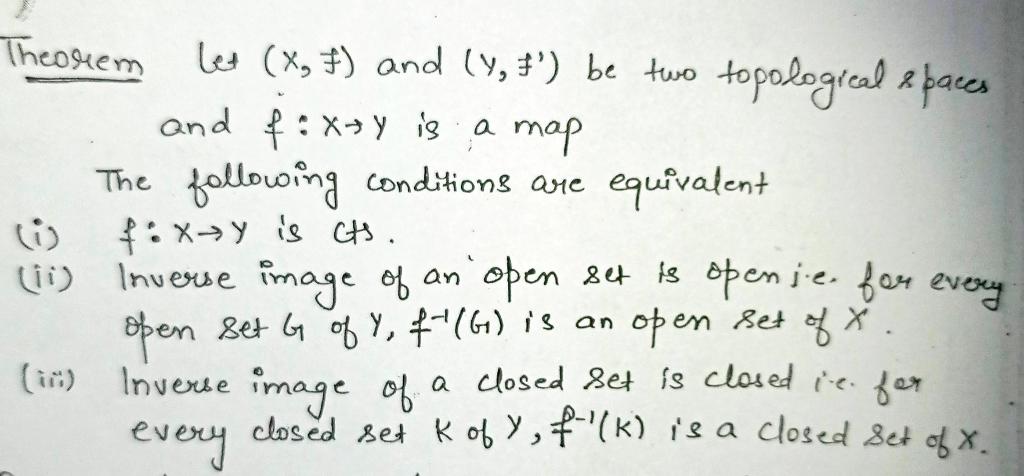 Theorem Let (X, Ŧ) and (Y, Ŧ') be two topological spaces
and f : X→Y is a map
The following conditions are equivalent
(i) f : X→Y is cts.
(ii) Inverse image of an open set is open i.e. for every
open set G of Y, f⁻¹(G) is an open set of X.
(iii) Inverse image of a closed set is closed i.e. for
every closed set K of Y, f⁻¹(K) is a closed set of X.